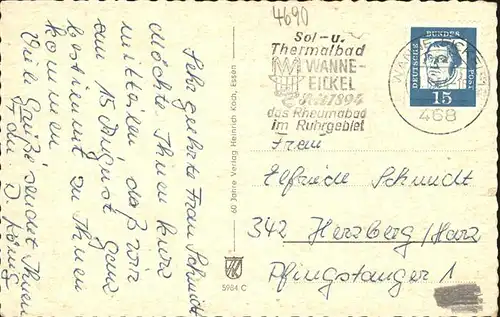 4690
Sol- u.
Thermalbad
WANNE-
EICKEL
Seit 1894
das Rheumabad
im Ruhrgebiet
DEUTSCHE BUNDESPOST
15
WANNE-EICKEL
468
Sehr geehrte Frau Schmidt
möchte Ihnen kurz
mitteilen daß wir
am 15 August gern
bestimmt zu Ihnen
kommen
Viele Grüße sendet Ihnen
Fr. König
60 Jahre Verlag Heinrich Koch, Essen
5984 C
Frau
Elfriede Schmidt
342 Herzberg/Harz
Pfingstanger 1